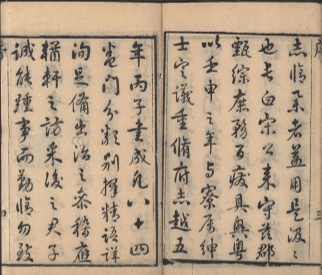 者益用是汲汲
也長白宋公来守兹郡
甄綜庶務百廢具舉粤
以壬申之年與寮屬紳
士定議重脩府志越五
年丙子書成凡八十四
卷門分類別擇精語詳
洵足備出治之參稽應
輶軒之訪采後之君子
誠能踵事而勤脩勿致